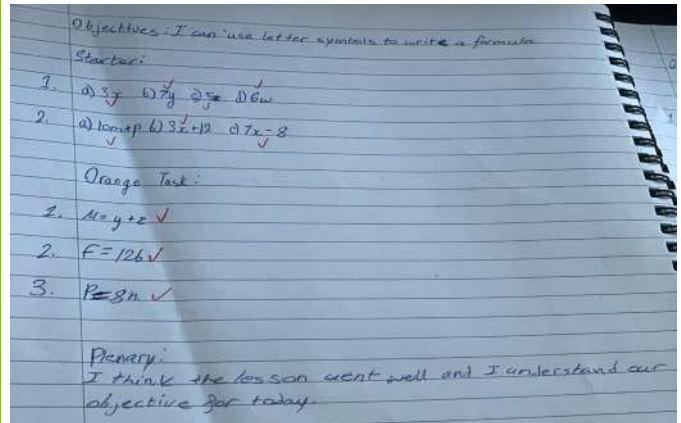 Objectives: I can use letter symbols to write a formula
Starter:
1. a) 3x b) 7y c) 5z d) 6w
2. a) 10m+p b) 3x+12 c) 7x-8
Orange Task:
1. M=y+z
2. F=12b
3. P=8n
Plenary:
I think the lesson went well and I understand our
objective for today.